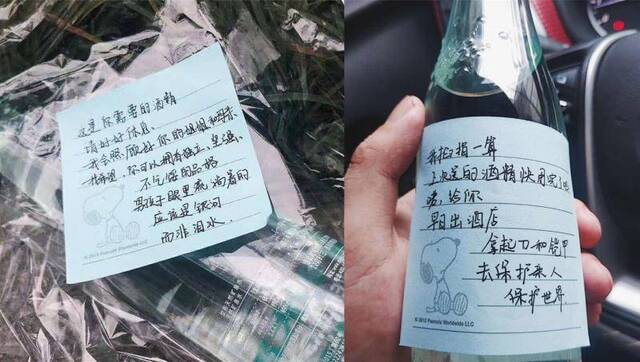 这是你需要的酒精
请好好休息.
我会照顾好你的姐姐和母亲
我知道,你可以拥有独立、坚强、
不气馁的品格
男孩子眼里流淌着的
应该是银河
而非泪水.
© 2013 Peanuts Worldwide LLC
我掐指一算
上次送的酒精快用完了吧
喏,给你
早日出酒店
拿起刀和铠甲
去保护家人
保护世界.
© 2013 Peanuts Worldwide LLC